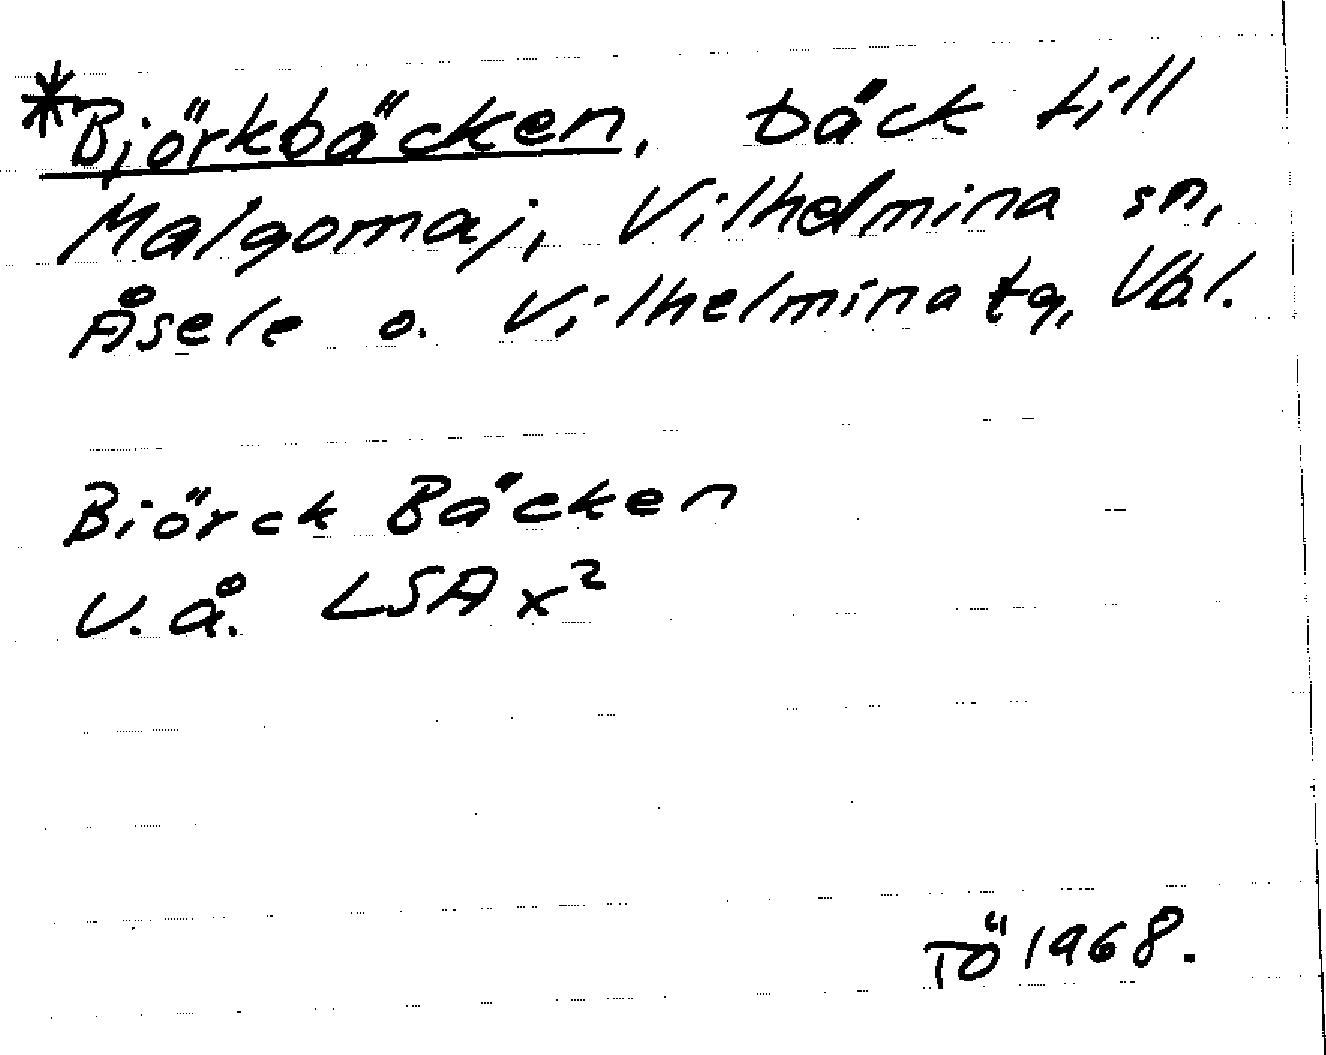 *Björkbäcken, bäck till
Malgomaj, Vilhelmina sn,
Åsele o. Vilhelmina tg, Vb.l.
Biörck Bäcken
U.å. LSA x²
TÖ 1968.